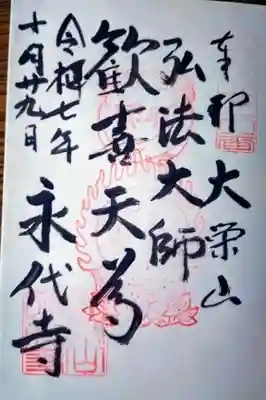 奉拝 大栄山
弘法大師
歓喜天
永代寺
令和七年
十月廿九日